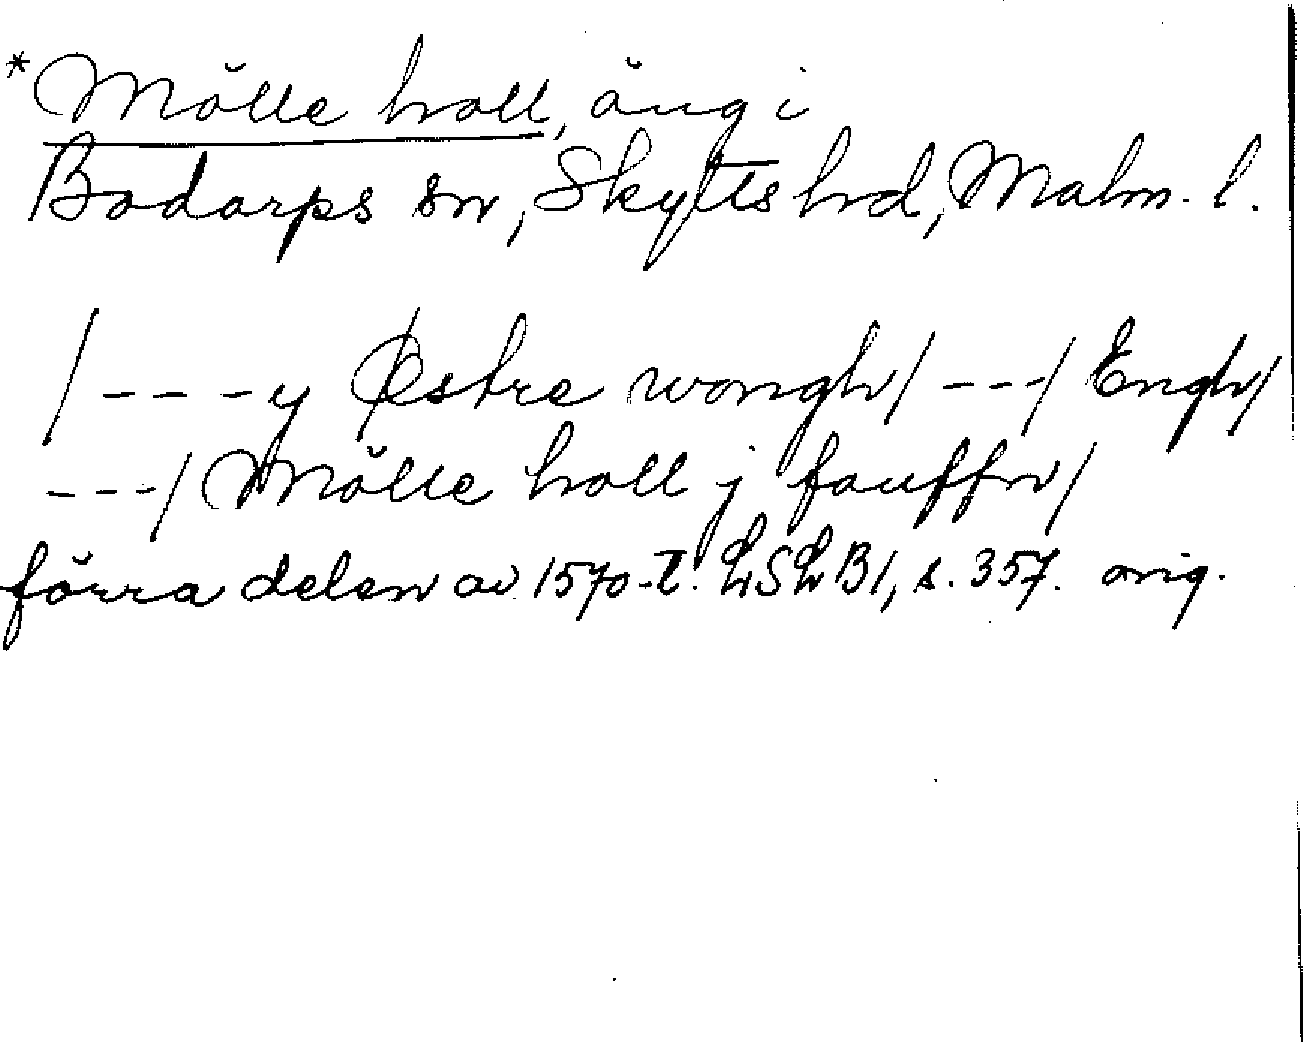 *Mölle holl, äng i
Bodarps sn, Skytts hd, Malm. l.
/----y Østre wongh/---/Engh/
---/Mölle holl j fauffn/
förra delen av 1570-t. LSLB1, s. 357. orig.